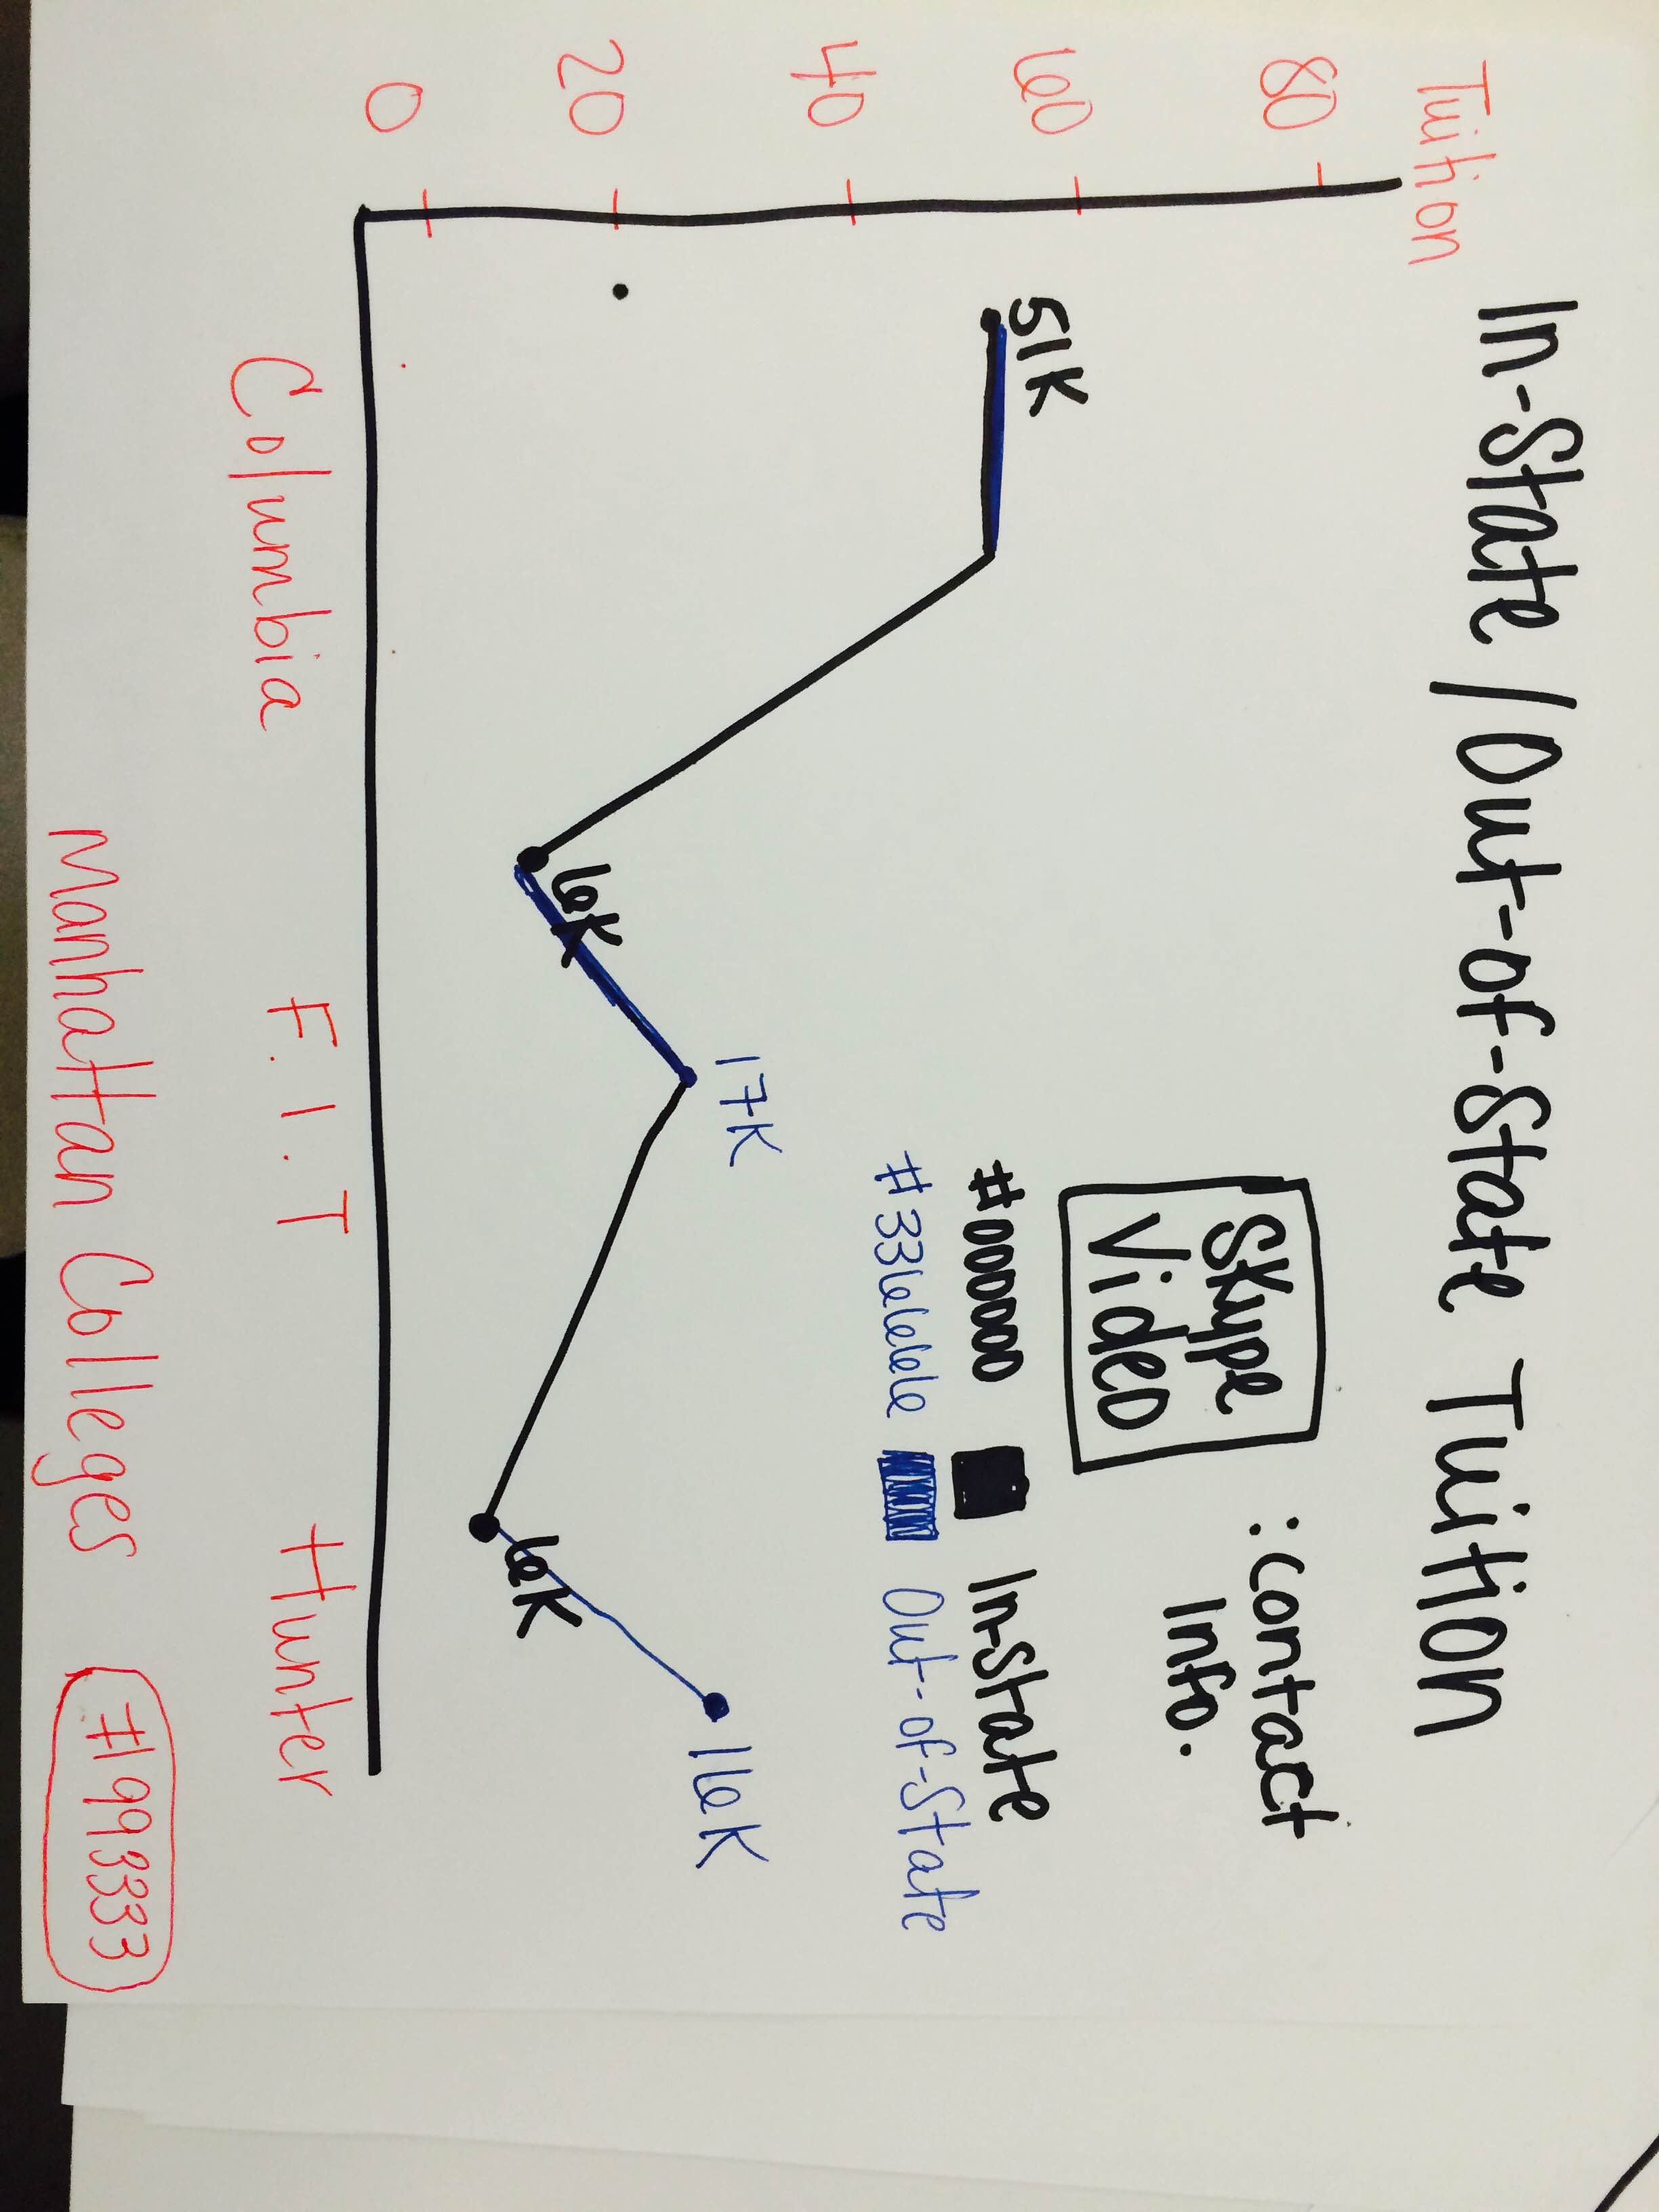 In-State / Out-of-State Tuition
Tuition
80
60
40
20
0
Skype
Video
: contact
Info.
#000000 In-State
#336666 Out-of-State
51K
6K
17K
6K
16K
Columbia F.I.T Hunter
Manhattan Colleges #1993333